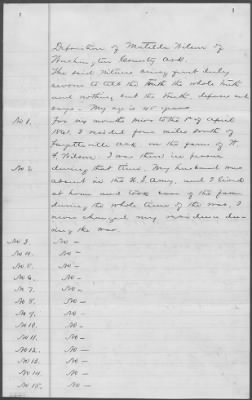 1 1
Deposition of Matilda Wilson of
Washington County Ark.
The said witness being first duly
sworn to tell the truth the whole truth
and nothing but the truth, deposes and
says - My age is 45 years
No 1. For six months prior to the 1st of April
1861, I resided four miles south of
Fayetteville Ark. on the farm of
Wilson. I was there in person
during that time. My husband was
No 2. absent in the U.S. Army, and I lived
at home and took care of the farm
during the whole time of the war, I
never changed my residence du-
ring the war.
No 3. No -
No 4. No -
No 5. No -
No 6. No -
No 7. No -
No 8. No -
No 9. No -
No 10. No -
No 11. No -
No 12. No -
No 13. No -
No 14. No -
No 15. No -